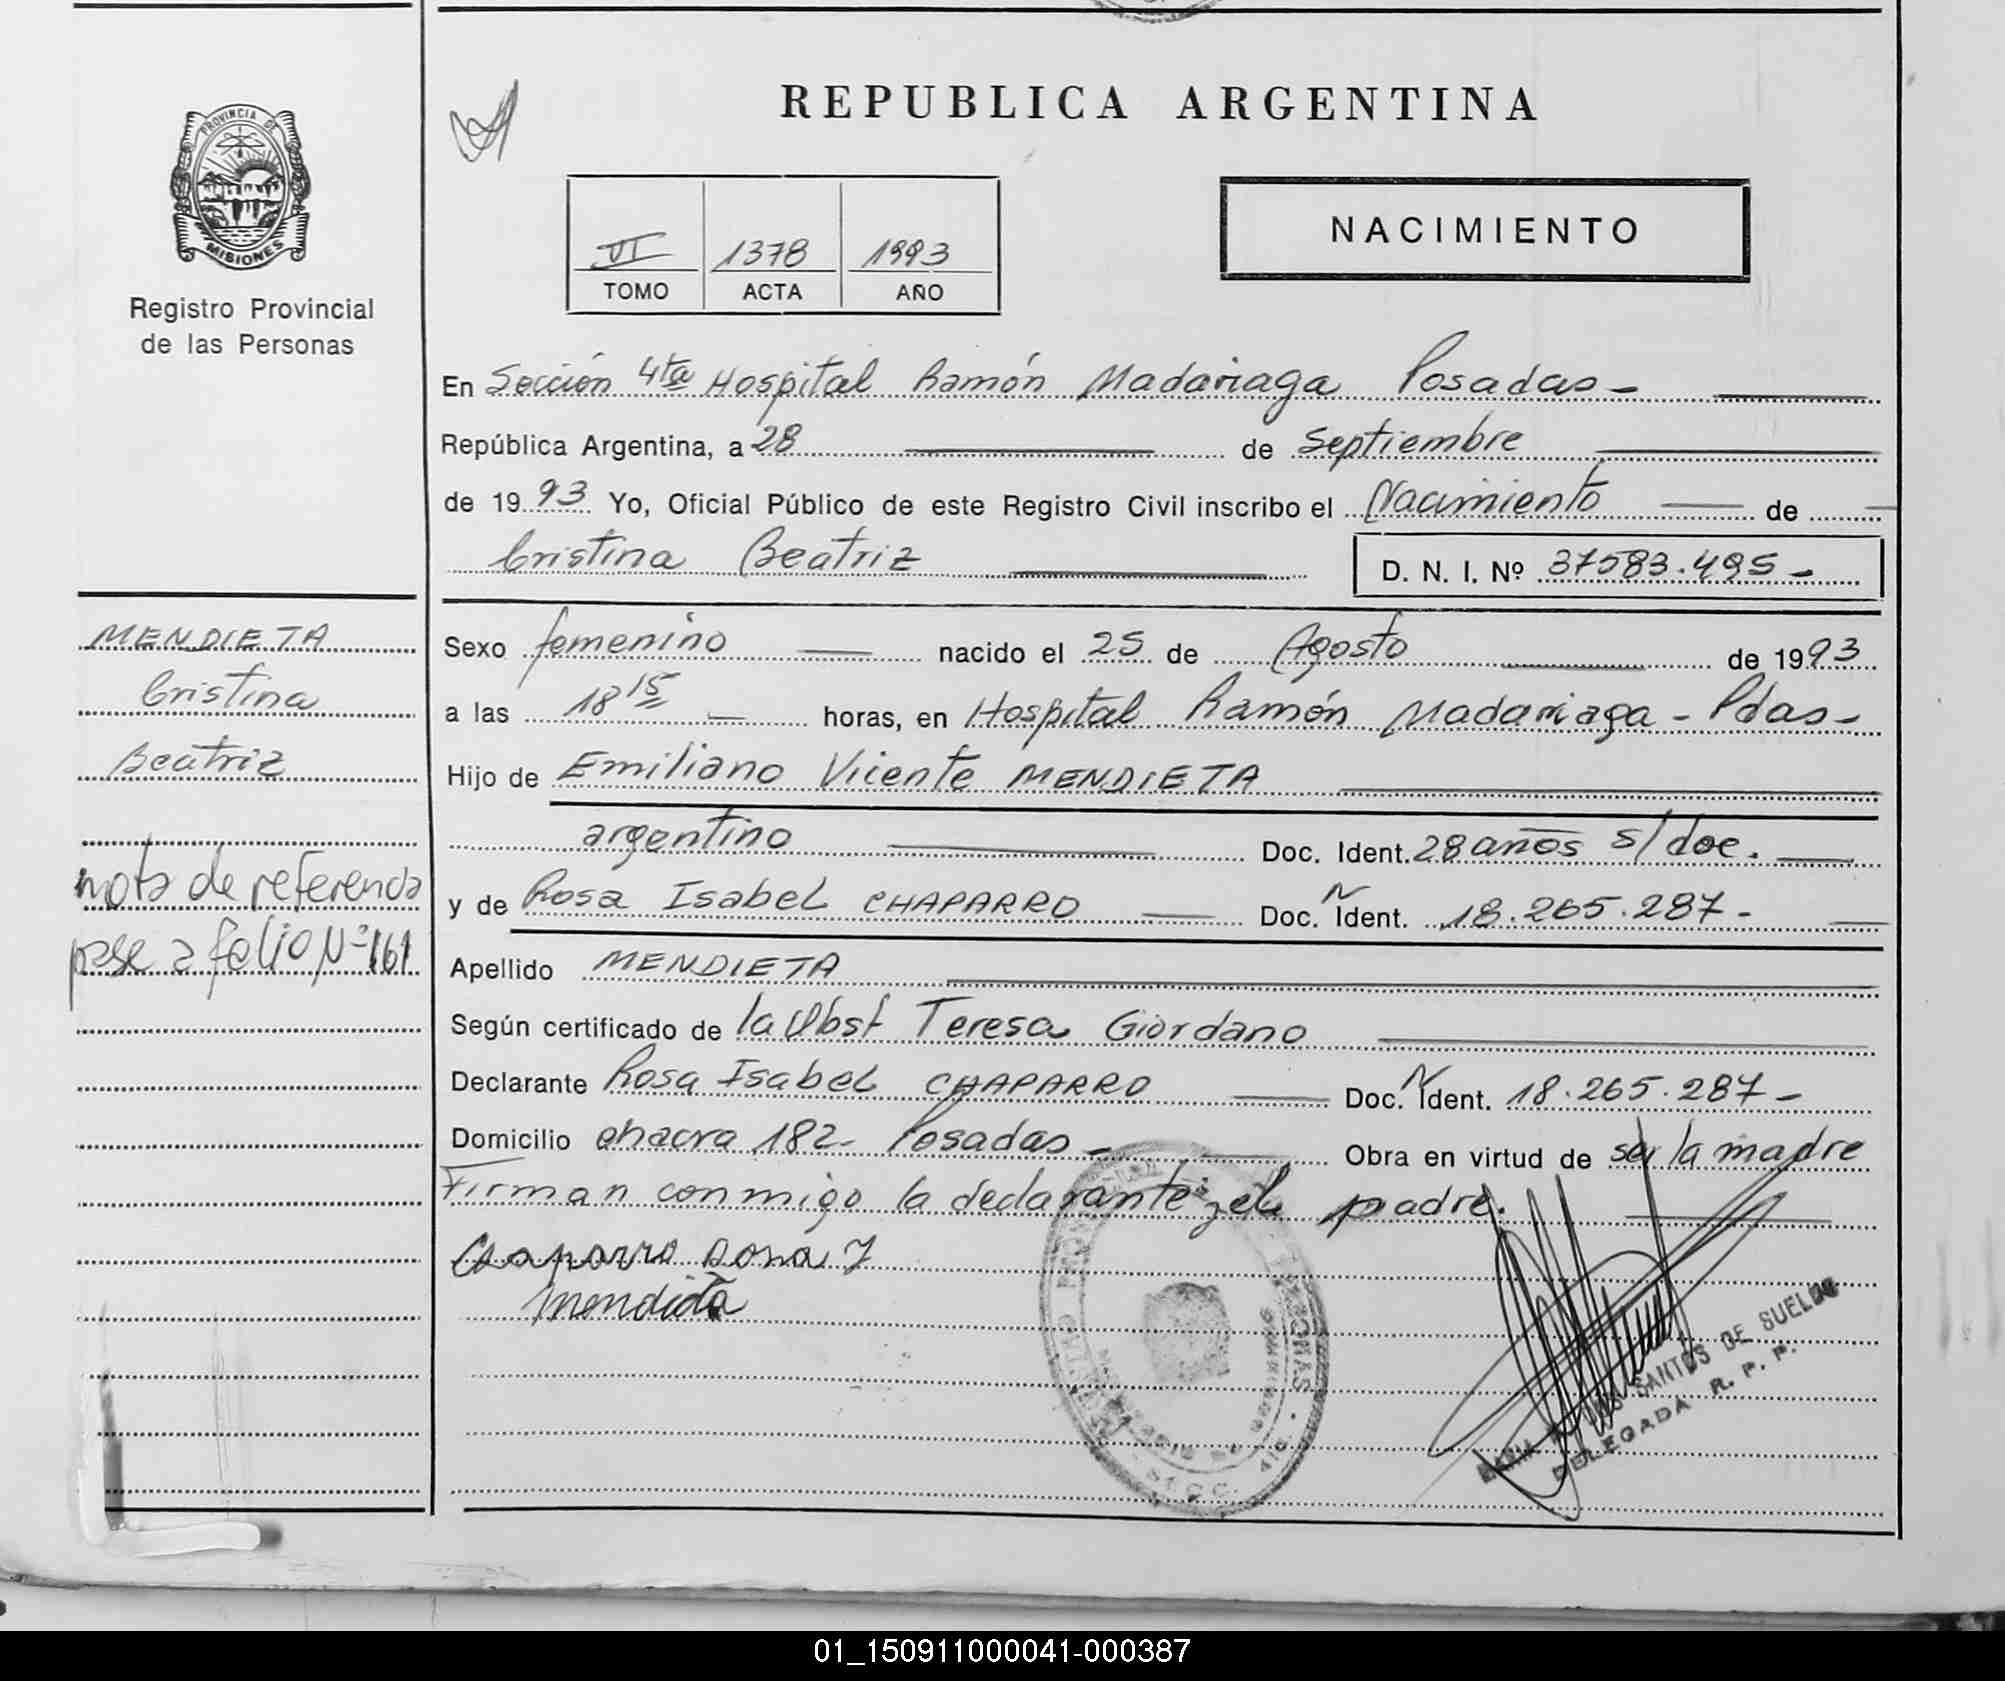 REPUBLICA ARGENTINA
PROVINCIA DE
MISIONES
Registro Provincial
de las Personas
VI 1378 1993
TOMO ACTA AÑO
NACIMIENTO
En Sección 4ta Hospital Ramón Madariaga Posadas-
República Argentina, a 28 de Septiembre
de 1993 Yo, Oficial Público de este Registro Civil inscribo el Nacimiento de
Cristina Beatriz D. N. I. Nº 37583.495-
MENDIETA
Cristina
Beatriz
nota de referencia
pase a folio Nº 161
Sexo femenino nacido el 25 de Agosto de 1993
a las 18 15 horas, en Hospital Ramón Madariaga - Pdas-
Hijo de Emiliano Vicente MENDIETA
argentino Doc. Ident. 28 años s/doc.
y de Rosa Isabel CHAPARRO Doc. N Ident. 18.265.287-
Apellido MENDIETA
Según certificado de la Obst Teresa Giordano
Declarante Rosa Isabel CHAPARRO Doc. N Ident. 18.265.287-
Domicilio chacra 182- Posadas- Obra en virtud de ser la madre
Firman conmigo la declarante y el padre.
Chaparro Rosa I
Mendieta
SANTOS DE SUELDO
DELEGADA R. P. P.
01_150911000041-000387